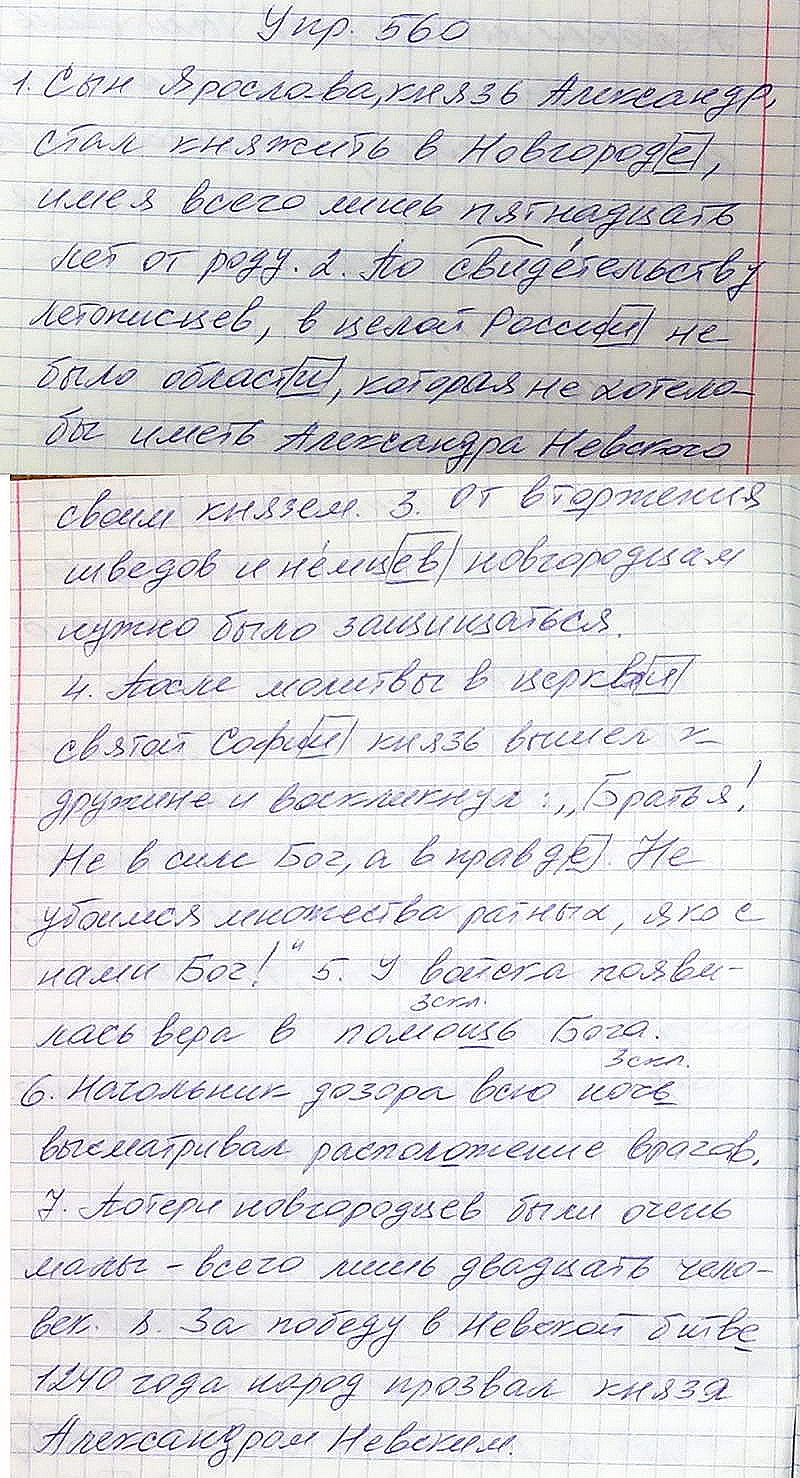 Упр. 560
1. Сын Ярослава, князь Александр,
стал княжить в Новгороде,
имея всего лишь пятнадцать
лет от роду. 2. По свидетельству
летописцев, в целой России не
было области, которая не хотела
бы иметь Александра Невского
своим князем. 3. От вторжения
шведов и немцев новгородцам
нужно было защищаться.
4. После молитвы в церкви
святой Софии князь вышел к
дружине и воскликнул: „Братья!
Не в силе Бог, а в правде. Не
убоимся множества ратных, яко с
нами Бог!" 5. У войска появи-
3 скл.
лась вера в помощь Бога.
3 скл.
6. Начальник дозора всю ночь
высматривал расположение врагов.
7. Потери новгородцев были очень
малы - всего лишь двадцать чело-
век. 8. За победу в Невской битве
1240 года народ прозвал князя
Александром Невским.